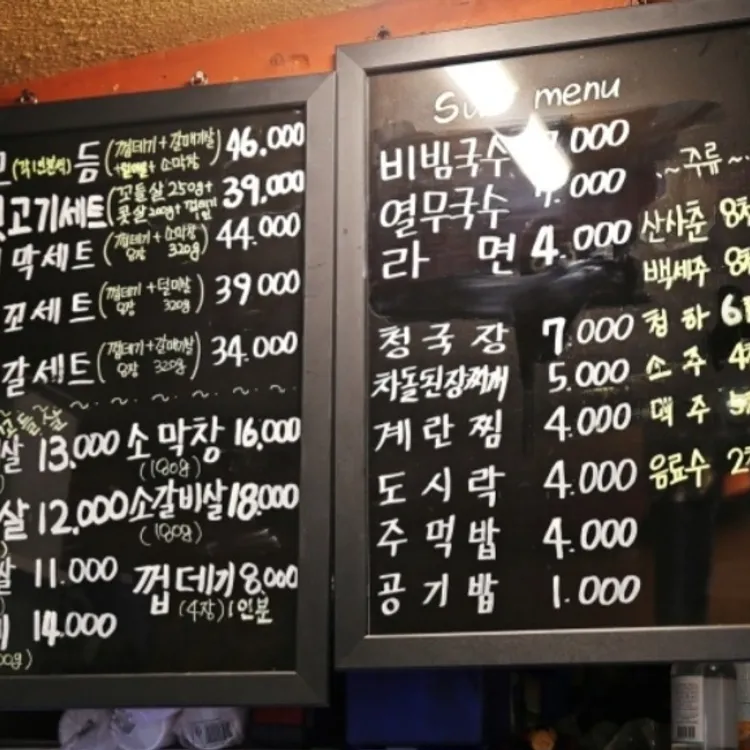 (각1인분씩) 듬 (껍데기 + 갈매기살 + 소막창) 46.000
고기세트 (꼬들살 250g + 200g + 껍데기 1인) 39.000
막세트 (껍데기 + 소막창 320g) 44.000
꼬세트 (껍데기 + 덜미살 320g) 39000
갈세트 (껍데기 + 갈매기살 320g) 34.000
살 13.000 소막창 16.000
(180g)
살 12.000 소갈비살 18.000
(180g)
살 11.000 껍데기 8.000
(4장) 1인분
14.000
menu
비빔국수 000
열무국수 000
라면 4.000
청국장 7.000
차돌된장찌개 5.000
계란찜 4.000
도시락 4.000
주먹밥 4.000
공기밥 1.000
~주류~
산사춘 8천
백세주 8천
청하 6
소주 4
맥주
음료수 2천